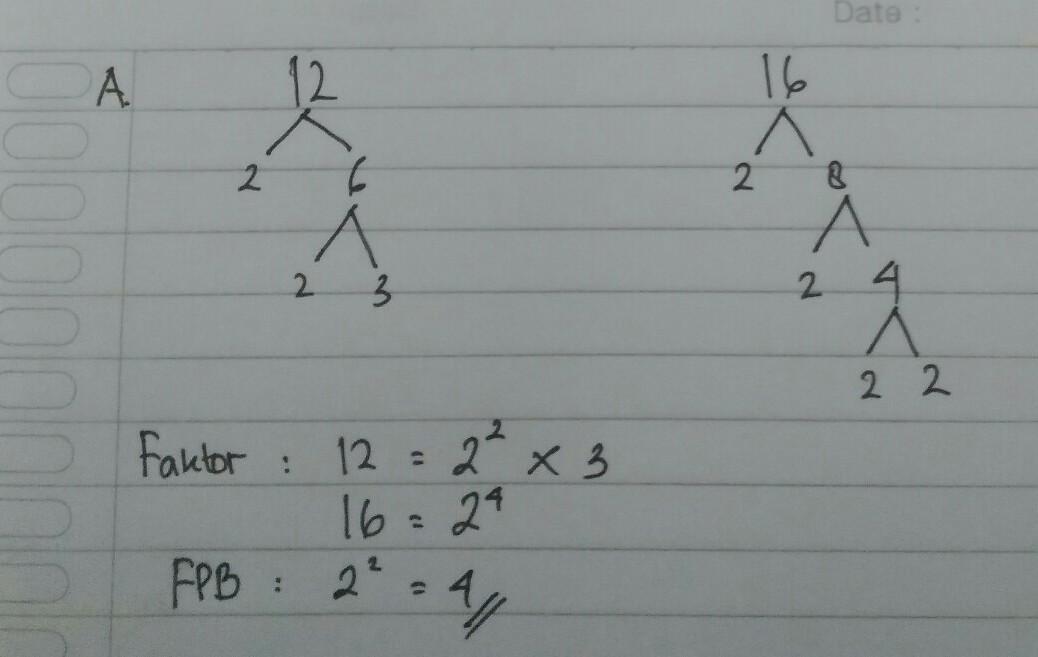 Date :
A. 12 16
2 6 2 8
2 3 2 4
2 2
Faktor : 12 = 2² × 3
16 = 2⁴
FPB : 2² = 4